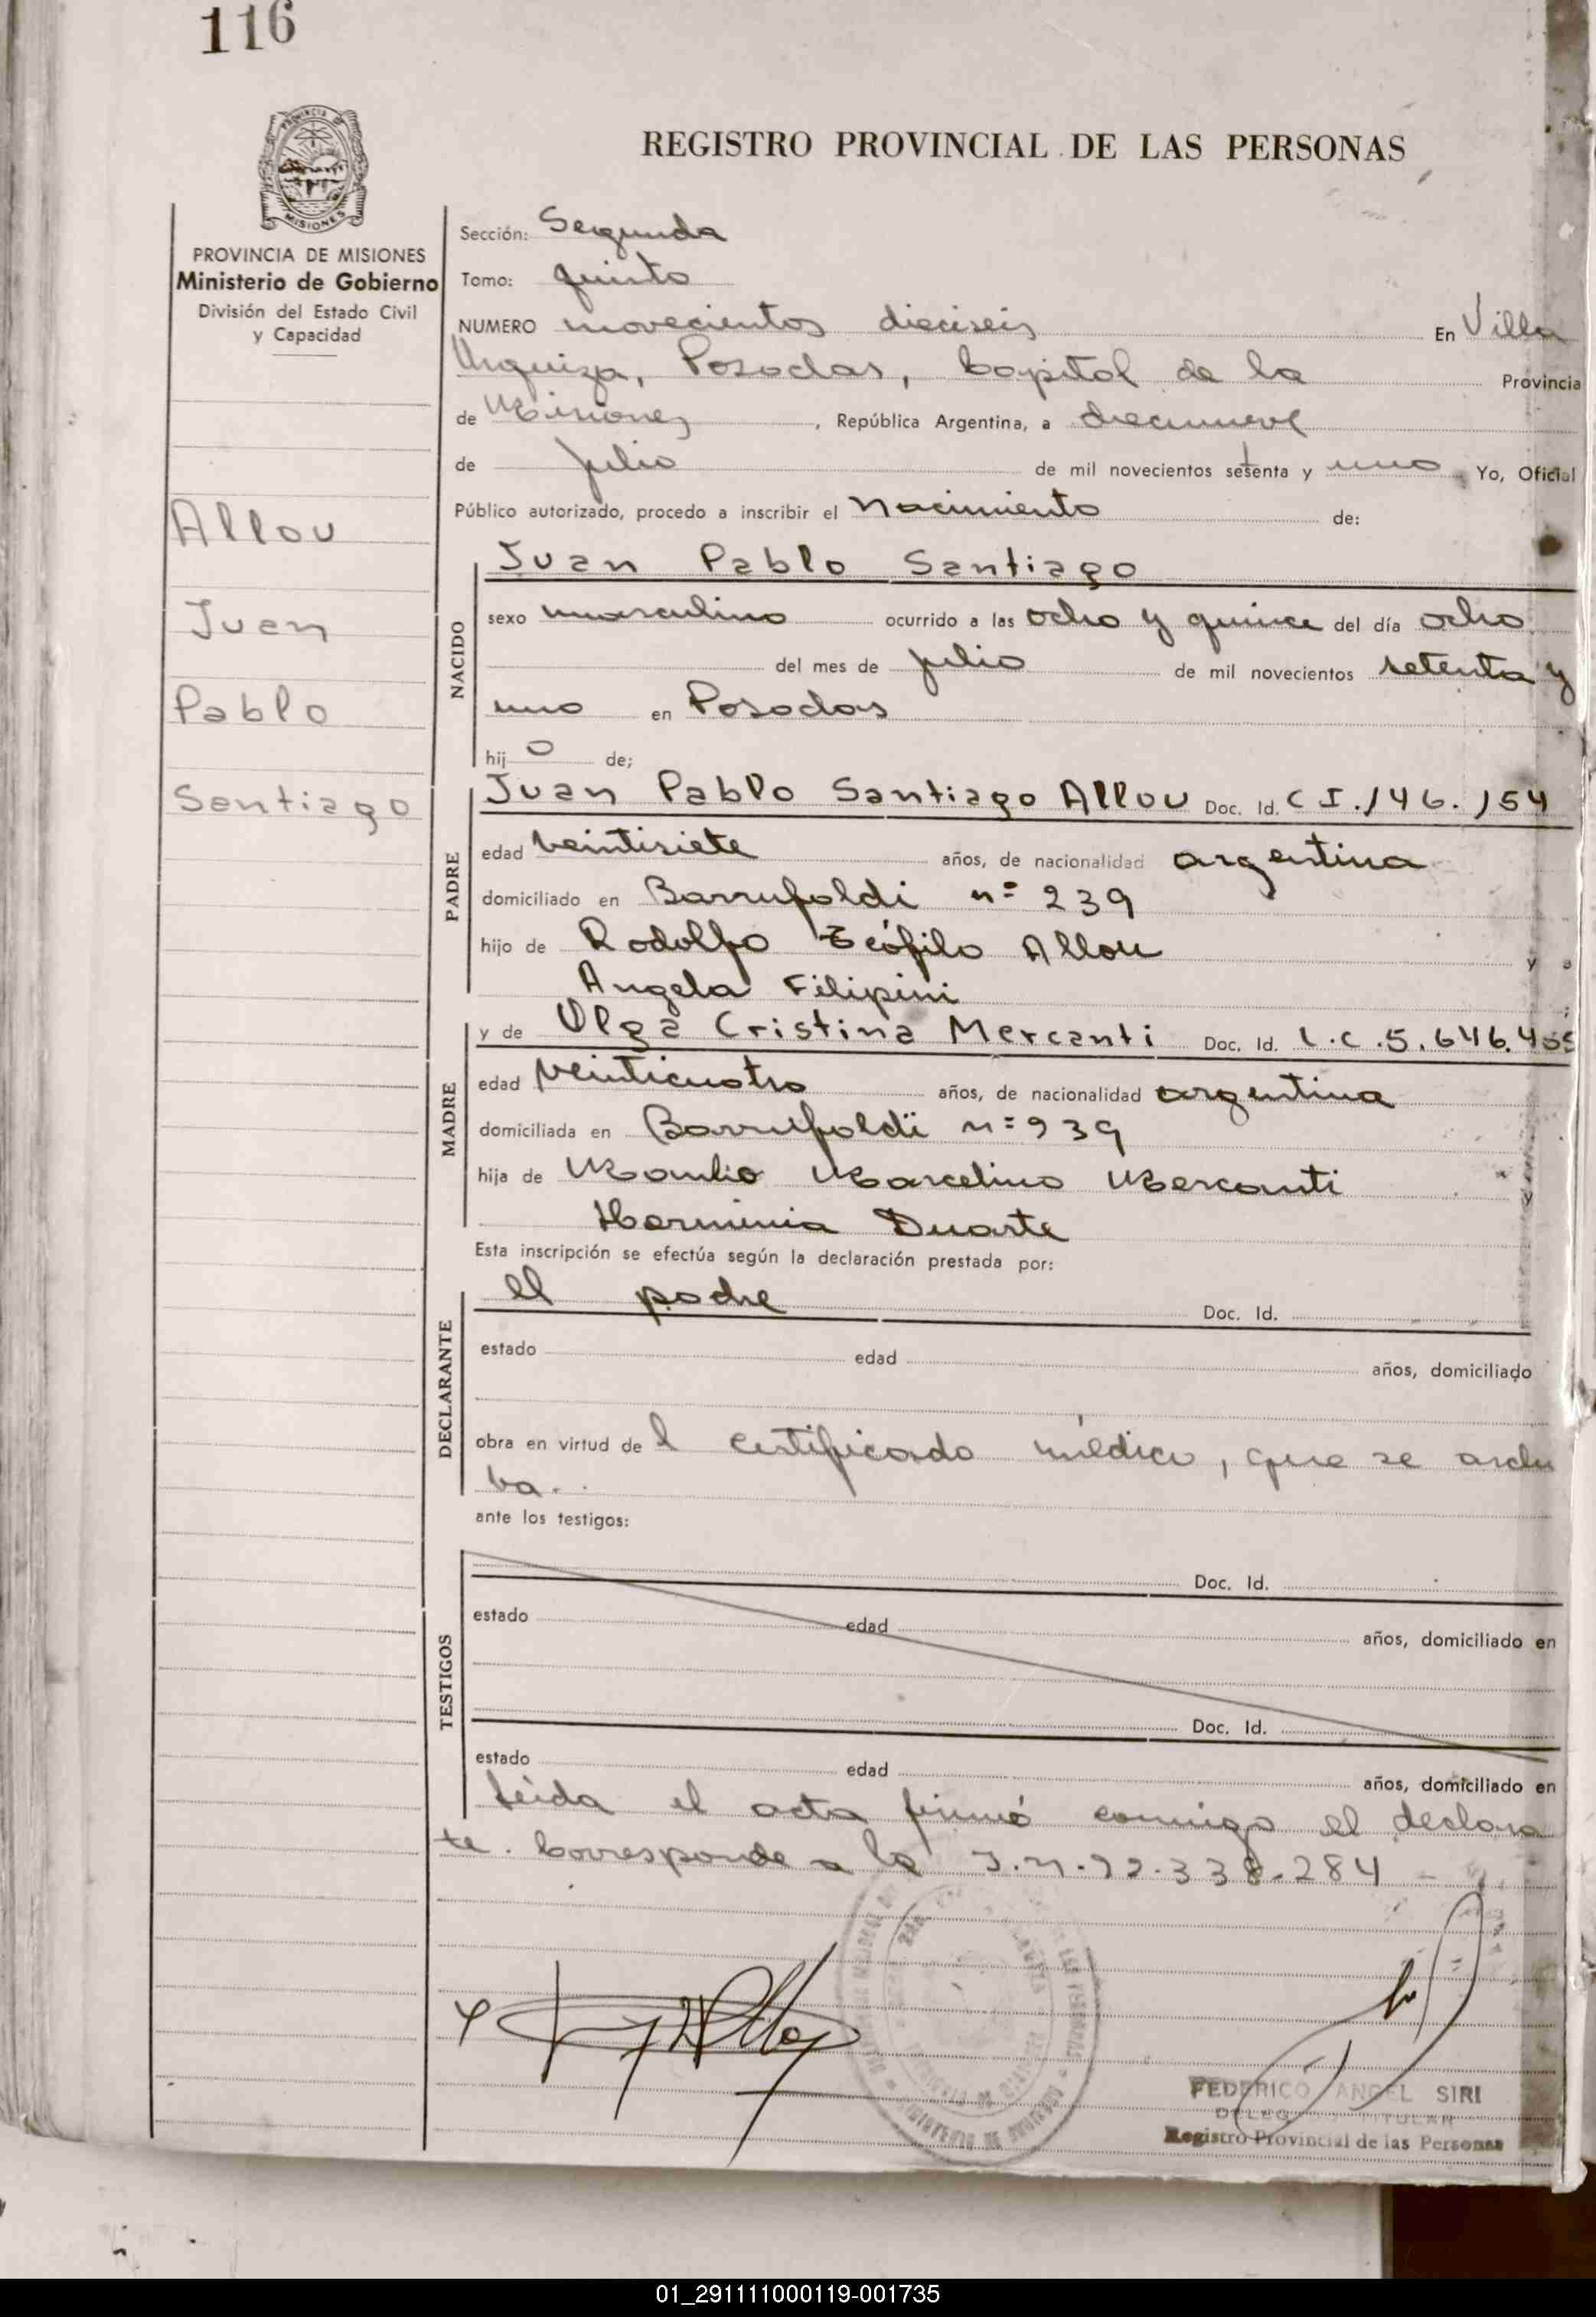 116
MISIONES
PROVINCIA DE MISIONES
Ministerio de Gobierno
División del Estado Civil
y Capacidad
REGISTRO PROVINCIAL DE LAS PERSONAS
Sección: Segunda
Tomo: quinto
NUMERO novecientos dieciseis En Villa
Urquiza, Posadas, Capital de la Provincia
de Misiones, República Argentina, a diecinueve
de Julio de mil novecientos setenta y uno Yo, Oficial
Público autorizado, procedo a inscribir el Nacimiento de:
Allou
Juan
Pablo
Santiago
NACIDO
Juan Pablo Santiago
sexo masculino ocurrido a las ocho y quince del día ocho
del mes de julio de mil novecientos setenta y
uno en Posadas
hijo de;
PADRE
Juan Pablo Santiago Allou Doc. Id. C I. 146. 154
edad veintisiete años, de nacionalidad argentina
domiciliado en Barrufaldi nº 239
hijo de Rodolfo Teófilo Allou y
Angela Filipini
MADRE
y de Olga Cristina Mercanti Doc. Id. L.C.5.646.405
edad veinticuatro años, de nacionalidad argentina
domiciliada en Barrufaldi nº 939
hija de Manlio Marcelino Mercanti y
Herminia Duarte
Esta inscripción se efectúa según la declaración prestada por:
DECLARANTE
el padre Doc. Id.
estado edad años, domiciliado
obra en virtud del certificado médico, que se archi
va.
ante los testigos:
TESTIGOS
Doc. Id.
estado edad años, domiciliado en
Doc. Id.
estado edad años, domiciliado en
Leida el acta firmó conmigo el declara
te. Corresponde a la 22.338.284
FEDERICO ANGEL SIRI
DELEG TITULAR
Registro Provincial de las Personas
01_291111000119-001735